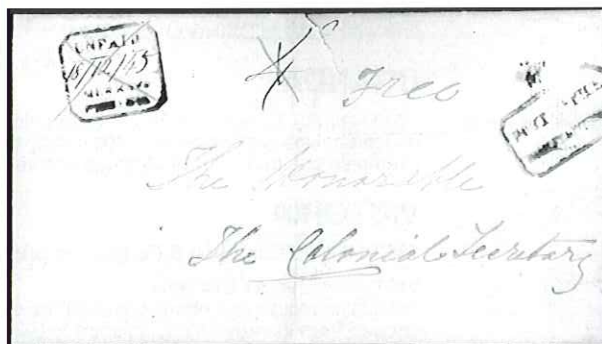 UNPAID
15/12/45
Free
The Honorable
The Colonial Secretary